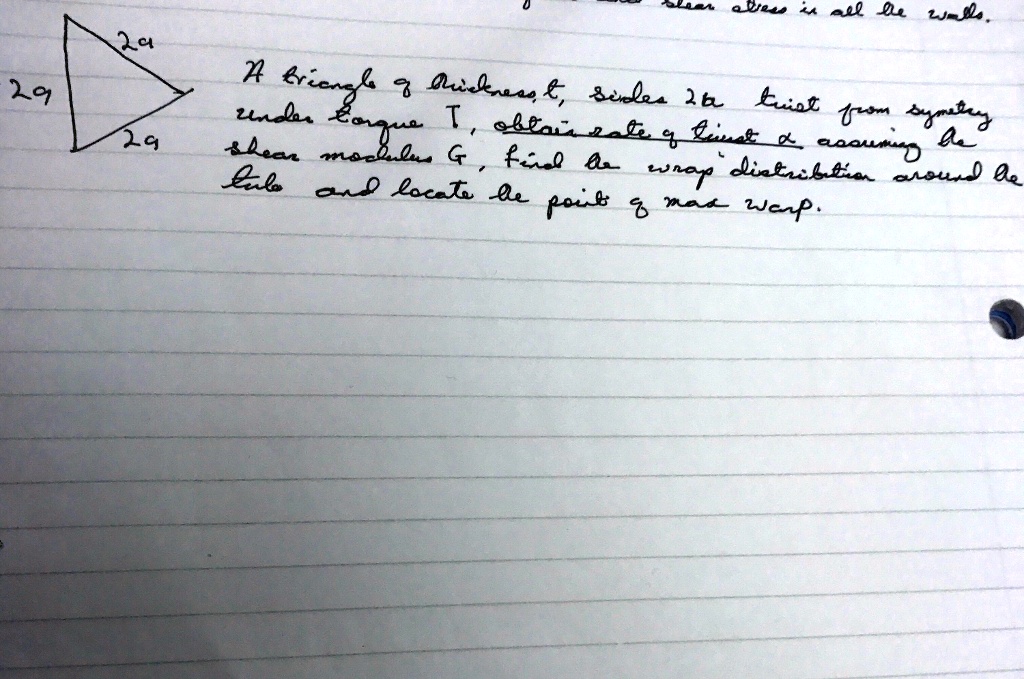 shear stress in all the walls.
2a
2a
2a
A triangle of thickness t, sides 2a twist from symetry
under torque T, obtain rate of twist α assuming the
shear modulus G, find the wrap distribution around the
tube and locate the point of max warp.